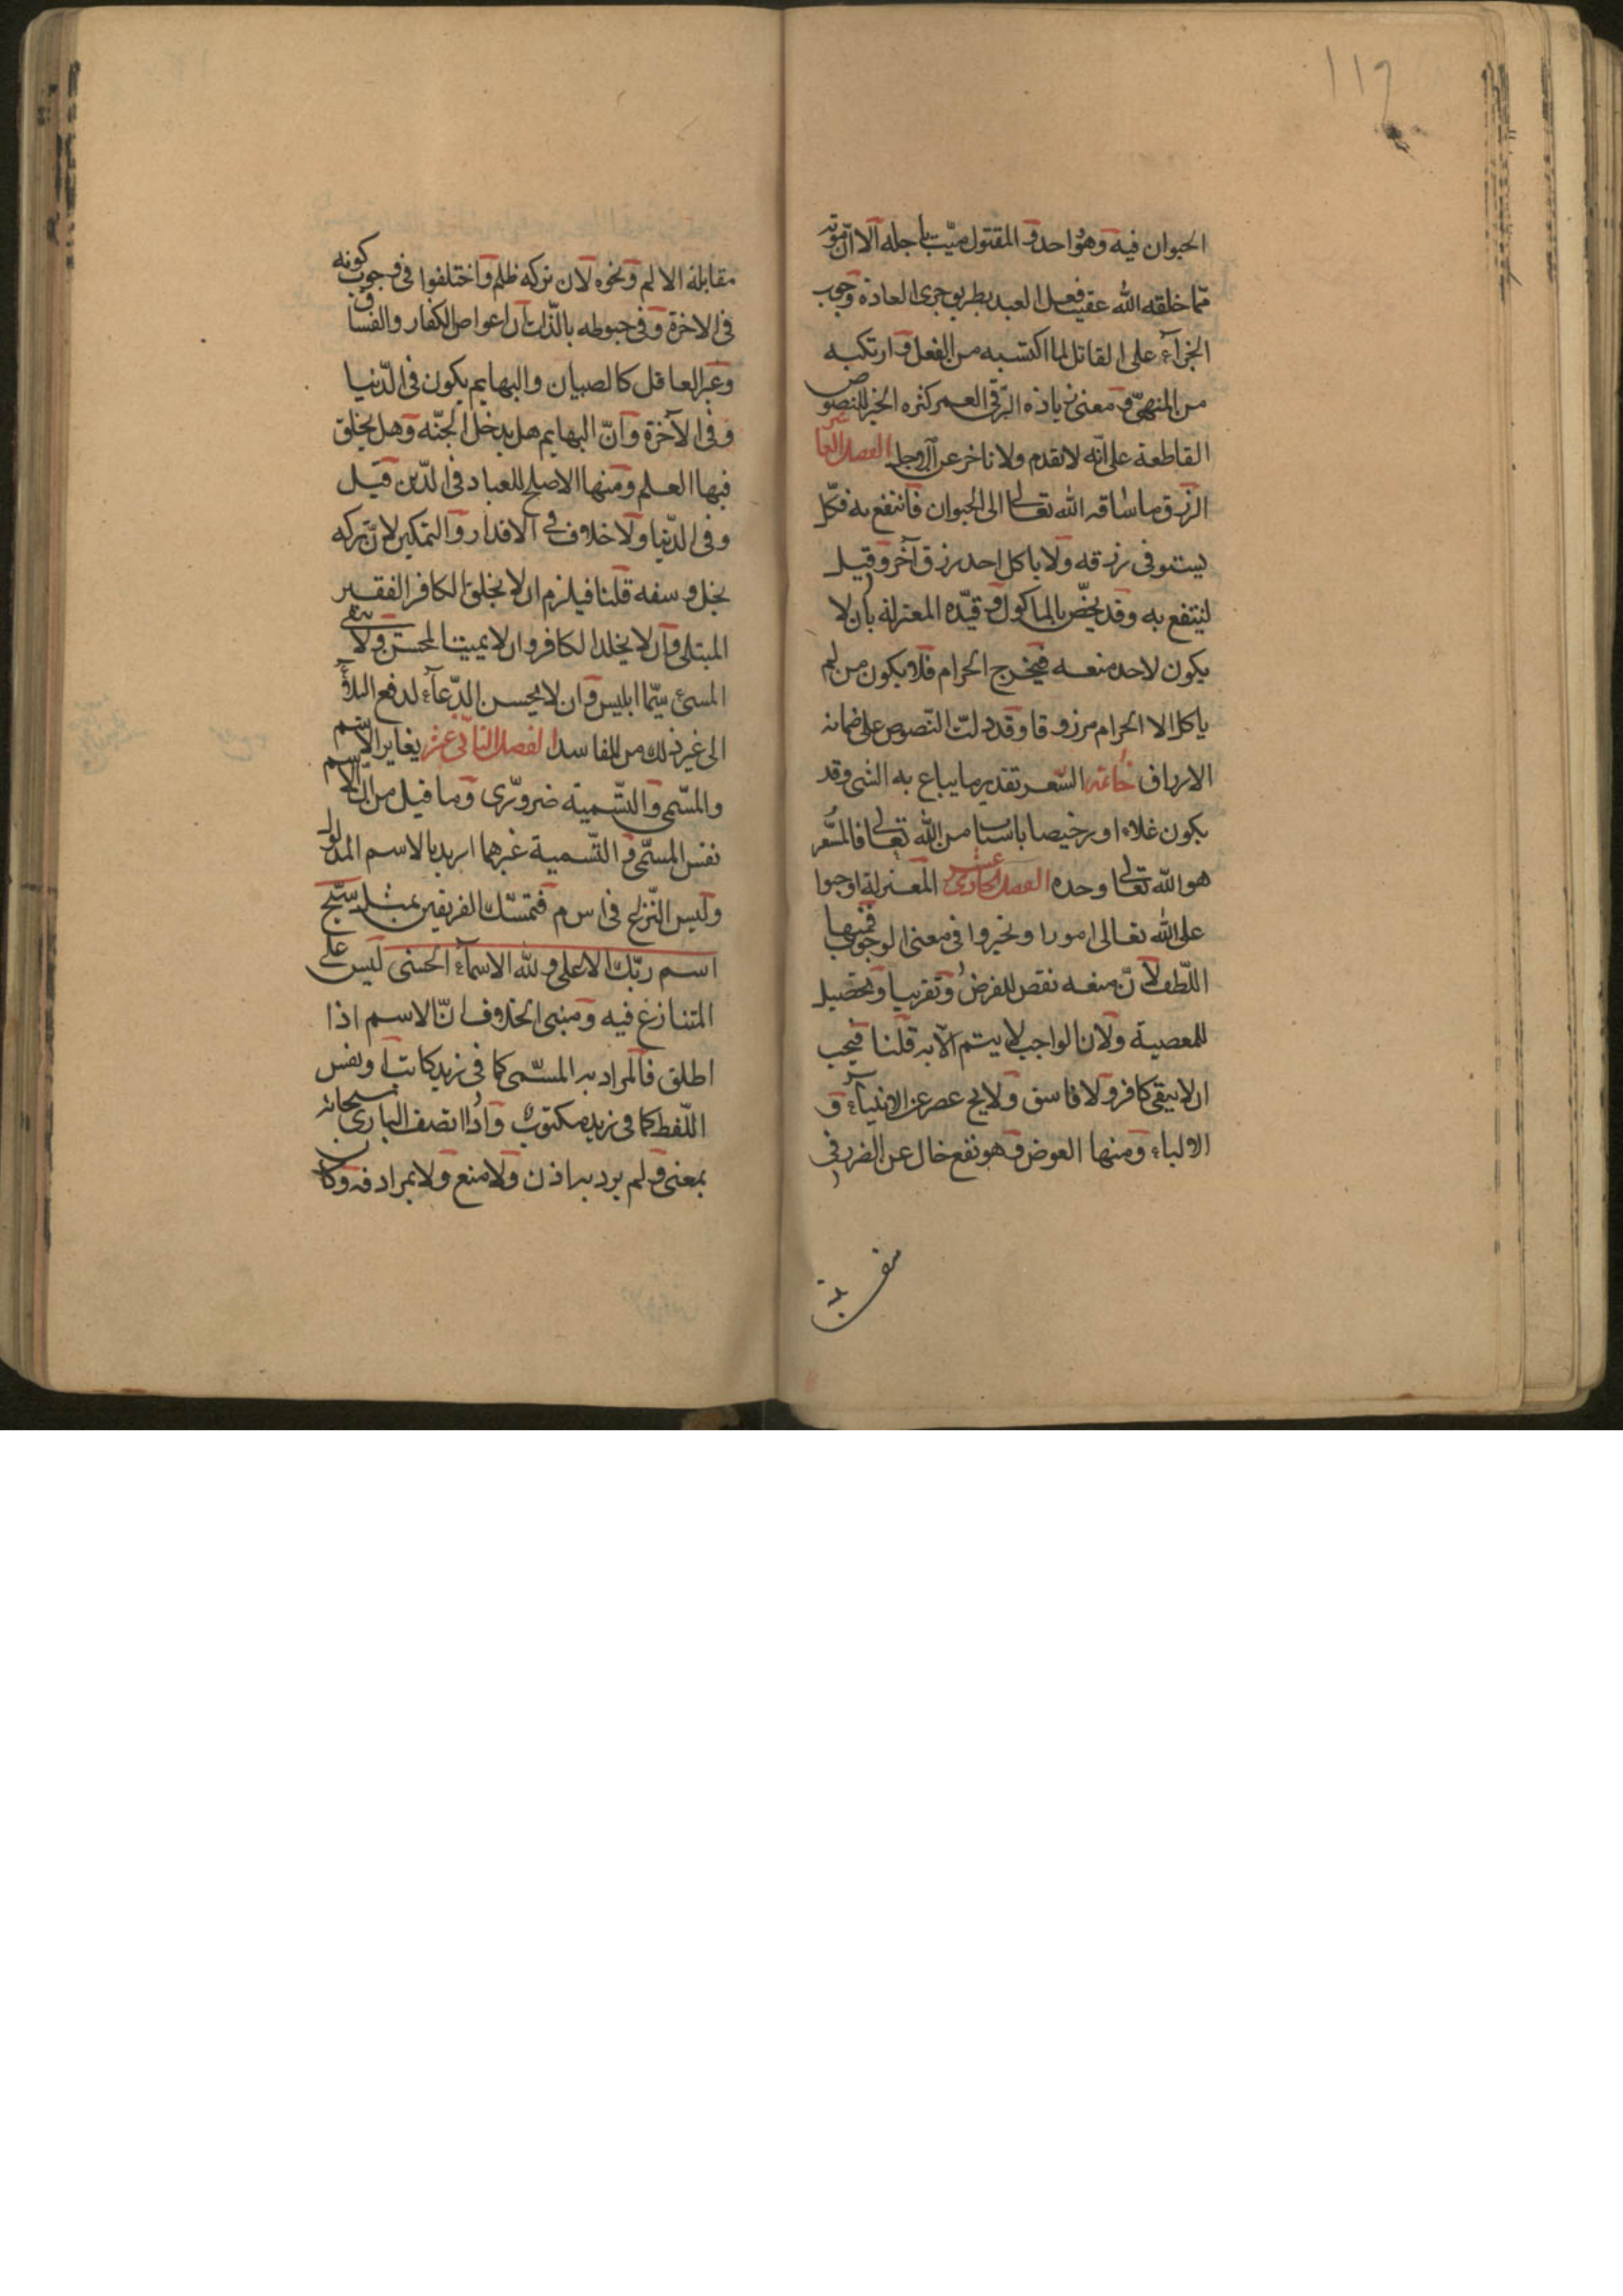 ١١٢
الحيوان فيه وهو واحد والمقتول ميّت باجله الا انّ موته
ممّا خلقه الله عقيب فعل العبد بطريق جرى العادة ووجوب
الجزآء على القاتل لما اكتسبه من الفعل وارتكبه
من المنهىّ ومعنى زيادة البرّ فى العمر كثرة الخير للنصوص
القاطعة على انّه لا تقدم ولا تاخر عن الاجل الفصل العاشر
الرزق ما ساقه الله تعالى الى الحيوان فانتفع به فكلّ
يستوفى رزقه ولا ياكل احد رزق آخر وقيل
لينتفع به وقد يخصّ بالماكول وقيّده المعتزلة بان لا
يكون لاحد منعه فيخرج الحرام فلا يكون من لم
ياكل الا الحرام مرزوقا وقد دلت النّصوص على ضمانه
الارزاق خاتمة السّعر تقدير ما يباع به الشى وقد
يكون غلاء او رخيصا باسباب من الله تعالى فالمسعّر
هو الله تعالى وحده الفصل الحادى عشر المعتزلة اوجبوا
على الله تعالى امورا وتحيروا فى معنى الوجوب فمنها
اللّطف لانّ منعه نقص للغرض وتقريبا وتحصيل
للمعصية ولان الواجب لا يتم الّا به قلنا فيجب
ان لا يبقى كافر ولا فاسق ولا يخ عصر عن الانبياء و
الاولياء ومنها العوض وهو نفع خال عن الضرر فى
مقابلة الالم ونحوه لان تركه ظلم واختلفوا فى وجوب كونه
فى الاخرة وفى حبوطه بالذّات ان اعواض الكفار والفساق
وغير العاقل كالصبيان والبهايم يكون فى الدّنيا
وفى الآخرة وانّ البهايم هل يدخل الجنّة وهل يخلق
فيها العلم ومنها الاصلح للعباد فى الدّين قيل
وفى الدّنيا ولا خلاف فى الاقدار والتمكين لانّ تركه
بخل وسفه قلنا فيلزم ان لا يخلق الكافر الفقير
المبتلى وان لا يخلد الكافر وان لا يميت المحسن ولا يبقى
المسئ سيّما ابليس وان لا يحسن الدّعآء لدفع البلاء
الى غير ذلك من المفاسد الفصل الثانى عشر يغاير الاسم
والمسّمى والتّسمية ضرورّى وما قيل من ان الاسم
نفس المسمّى والتّسمية غيرهما اريد بالاسم المدلول
وليس النّزاع فى ا س م فتمسّك الفريقين بمثل سبّح
اسم ربّك الاعلى ولله الاسمآء الحسنى ليس على
المتنازع فيه ومبنى الخلاف انّ الاسم اذا
اطلق فالمراد به المسّمى كما فى زيد كاتب او نفس
اللّفظ كما فى زيد مكتوب واذا اتصف البارى سبحانه
بمعنى ولم يرد به اذن ولا منع ولا بمرادفه وكان
مقابلة